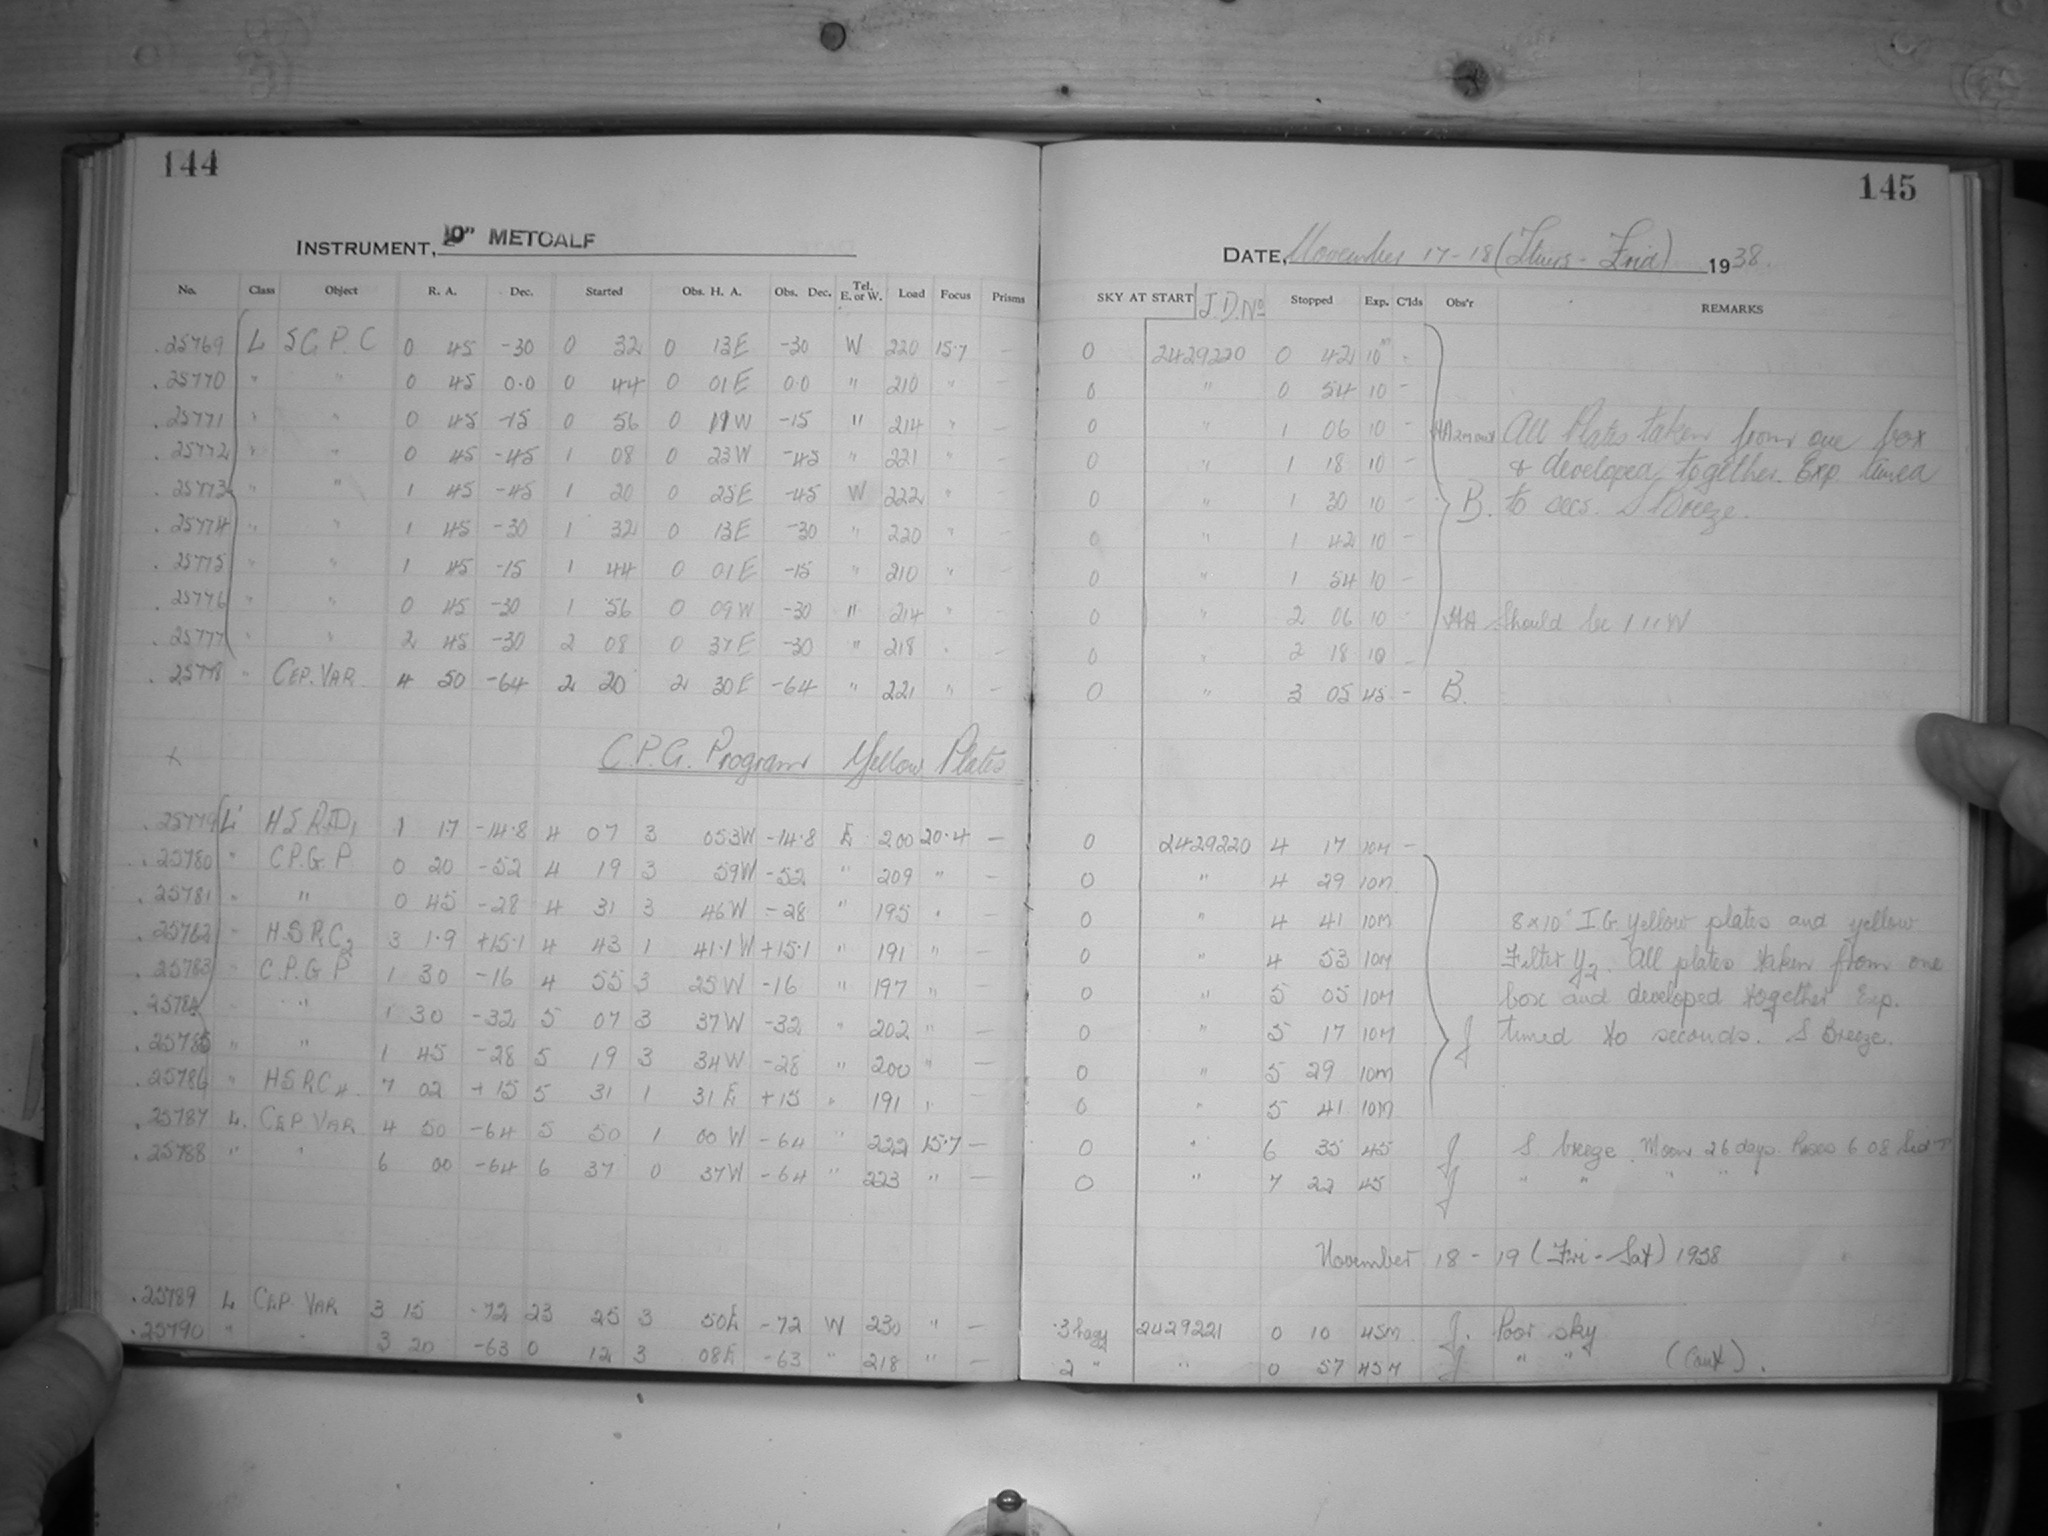 144
INSTRUMENT, 10" METCALF
No. Class Object R. A. Dec. Started Obs. H. A. Obs. Dec. Tel. E. or W. Load Focus Prisms
.25769 L S G P. C 0 45 -30 0 32 0 13E -30 W 220 15.7
.25770 " " 0 45 0.0 0 44 0 01E 0.0 " 210 " –
.25771 " " 0 45 -15 0 56 0 11W -15 " 214 " –
.25772 " " 0 45 -45 1 08 0 23W -45 " 221 " –
.25773 " " 1 45 -45 1 20 0 25E -45 W 222 " –
.25774 " " 1 45 -30 1 32 0 13E -30 " 220 " –
.25775 " " 1 45 -15 1 44 0 01E -15 " 210 " –
.25776 " " 0 45 -30 1 56 0 09W -30 " 214 " –
.25777 " " 2 45 -30 2 08 0 37E -30 " 218 " –
.25778 " CEP. VAR. 4 50 -64 2 20 2 30E -64 " 221 " –
C.P.G. Program Yellow Plates
.25779 L HSRD1 1 1.7 -14.8 4 07 3 05.3W -14.8 E 200 20.4 –
.25780 " C.P.G.P 0 20 -52 4 19 3 59W -52 " 209 " –
.25781 " " 0 45 -28 4 31 3 46W -28 " 195 " –
.25782 " H.S.R.C2 3 1.9 +15.1 4 43 1 41.1W +15.1 " 191 " –
.25783 " C.P.G.P 1 30 -16 4 55 3 25W -16 " 197 " –
.25784 " " 1 30 -32 5 07 3 37W -32 " 202 " –
.25785 " " 1 45 -28 5 19 3 34W -28 " 200 " –
.25786 " HSRC4. 7 02 +15 5 31 1 31E +15 " 191 " –
.25787 L. CEP VAR 4 50 -64 5 50 1 00W -64 " 222 15.7 –
.25788 " " 6 00 -64 6 37 0 37W -64 " 223 " –
.25789 L CEP VAR 3 15 -72 23 25 3 50E -72 W 230 " –
.25790 " " 3 20 -63 0 12 3 08E -63 " 218 " –
145
DATE, November 17-18 (Thurs - Frid) 1938.
SKY AT START J.D.No Stopped Exp. C'lds Obs'r REMARKS
0 2429220 0 42 10m -
0 " 0 54 10 -
0 " 1 06 10 - All Plates taken from one box
0 " 1 18 10 - & developed together. Exp. timed
0 " 1 30 10 - B. to secs. S Breeze.
0 " 1 42 10 -
0 " 1 54 10 -
0 " 2 06 10 - HA Should be 1 11W
0 " 2 18 10 -
0 " 3 05 45 - B.
0 2429220 4 17 10M -
0 " 4 29 10M
0 " 4 41 10M 8x10" I.G. Yellow plates and yellow
0 " 4 53 10M Filter Y2. All plates taken from one
0 " 5 05 10M box and developed together Exp.
0 " 5 17 10M J timed to seconds. S Breeze.
0 " 5 29 10M
0 " 5 41 10M
0 " 6 35 45 J S. breeze. Moon 26 days. Rises 6 08
0 " 7 22 45 J " " " "
November 18 - 19 (Fri - Sat) 1938
.3 hazy 2429221 0 10 45M J. Poor sky
2 " " 0 57 45M J " " (Cont).